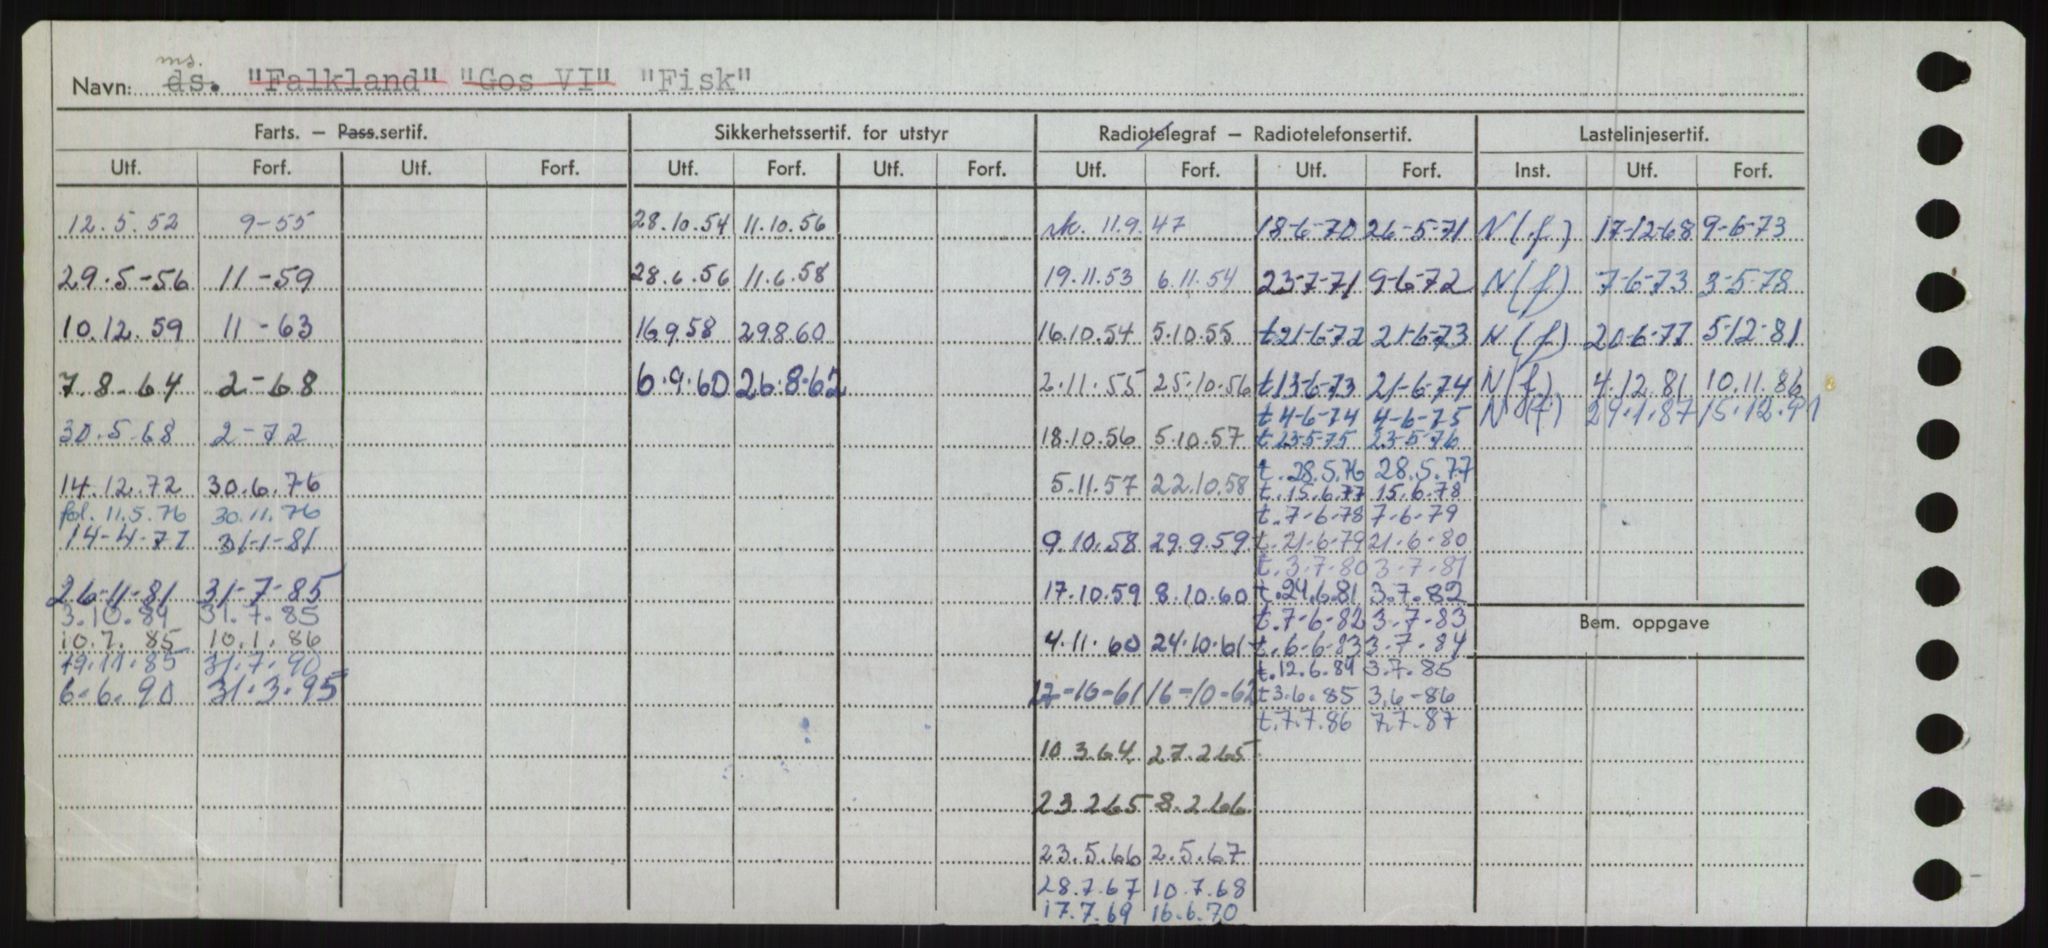 ms.
Navn: ds. "Falkland" "Gos VI" "Fisk"
Farts. — Pass.sertif. Sikkerhetssertif. for utstyr Radiotelegraf — Radiotelefonsertif. Lastelinjesertif.
Utf. Forf. Utf. Forf. Utf. Forf. Utf. Forf. Utf. Forf. Utf. Forf. Inst. Utf. Forf.
12.5.52 9-55 28.10.54 11.10.56 11.9.47 18-6-70 26-5-71 N(f) 17-12-68 9-6-73
29.5-56 11-59 28.6.56 11.6.58 19.11.53 6.11.54 23-7-71 9-6-72 N(f) 7-6-73 3-5-78
10.12.59 11-63 16.9.58 29.8.60 16.10.54 5.10.55 t.21-6-72 21-6-73 N(f) 20-6-77 5-12-81
7.8-64 2-68 6.9.60 26.8.62 2.11.55 25.10.56 t.13-6-73 21-6-74 N(f) 4.12.81 10.11.86
t.4-6-74 4-6-75 N(f) 29.1.87 15.12.91
30.5.68 2-72 18.10.56 5.10.57 t.23-5-75 23-5-76
t.28.5.76 28.5.77
14.12.72 30.6.76 5.11.57 22.10.58 t.15.6.77 15.6.78
fol. 11.5.76 30.11.76 t.7-6-78 7-6-79
14-4-77 31-1-81 9.10.58 29.9.59 t.21-6-79 21-6-80
t.3.7.80 3.7.81
26-11-81 31-7-85 17.10.59 8.10.60 t.24.6.81 3.7.82
3.10.84 31.7.85 t.7-6-82 3.7-83 Bem. oppgave
10.7.85 10.1.86 4.11.60 24.10.61 t.6-6-83 3.7-84
19.11.85 31.7.90 t.12.6.84 3.7.85
6.6.90 31.3.95 17-10-61 16-10-62 t3.6.85 3.6-86
t.7.7.86 7.7.87
10.3.64 27.2.65
23.2.65 8.2.66
23.5.66 2.5.67
28.7.67 10.7.68
17.7.69 16.6.70